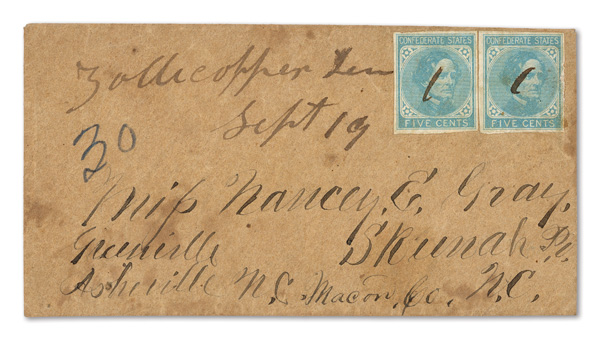 CONFEDERATE STATES CONFEDERATE STATES
FIVE CENTS FIVE CENTS
Zollicopper Ten
Sept 19
30
Miss Nancey, E. Gray,
Greenville Skeenah P.
Asheville N.C. Macon, Co. N.C.